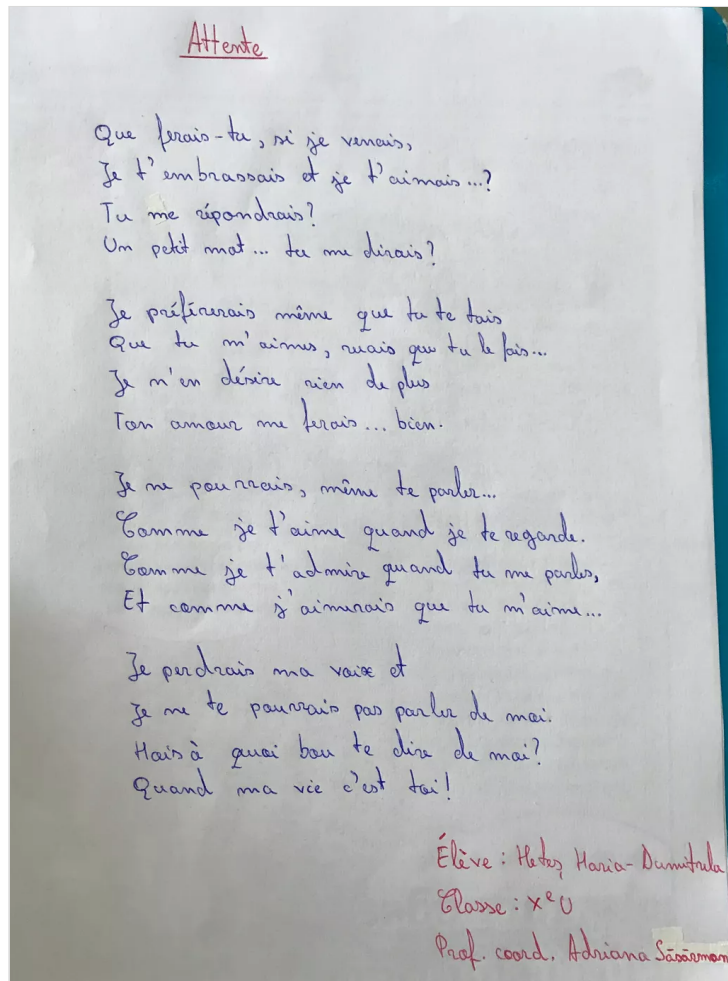 Attente
Que ferais-tu, si je venais,
Je t'embrassais et je t'aimais...?
Tu me répondrais?
Un petit mot... tu me dirais?
Je préférerais même que tu te tais
Que tu m'aimes, mais que tu le fais...
Je n'en désire rien de plus
Ton amour me ferais... bien.
Je ne pourrais, même te parler...
Comme je t'aime quand je te regarde.
Comme je t'admire quand tu me parles,
Et comme j'aimerais que tu m'aime...
Je perdrais ma voix et
Je ne te pourrais pas parler de moi.
Mais à quoi bon te dire de moi?
Quand ma vie c'est toi!
Élève: Heteș Maria-Dumitrula
Classe: Xᵉ U
Prof. coord. Adriana Săsărman